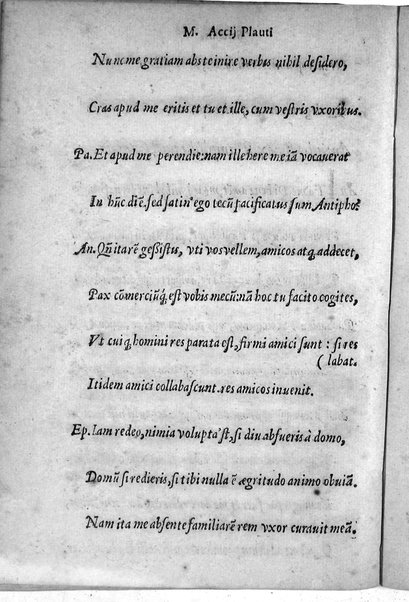 M. Accij Plauti
Nunc me gratiam abs te inire verbis nihil desidero,
Cras apud me eritis et tu et ille, cum vestris vxoribus.
Pa. Et apud me perendie: nam ille here me iā vocauerat
In hūc diē. sed satin' ego tecū pacificatus sum Antipho?
An. Qñ ita rē geßistus, vti vos vellem, amicos atq; addecet,
Pax cōmerciūq́; est vobis mecū: nā hoc tu facito cogites,
Vt cuiq; homini res parata est, firmi amici sunt : si res
(labat.
Itidem amici collabascunt. res amicos inuenit.
Ep. Iam redeo, nimia volupta'st, si diu abfueris à domo,
Domū si redieris, si tibi nulla ē ægritudo animo obuiā.
Nam ita me absente familiarē rem vxor curauit meā.